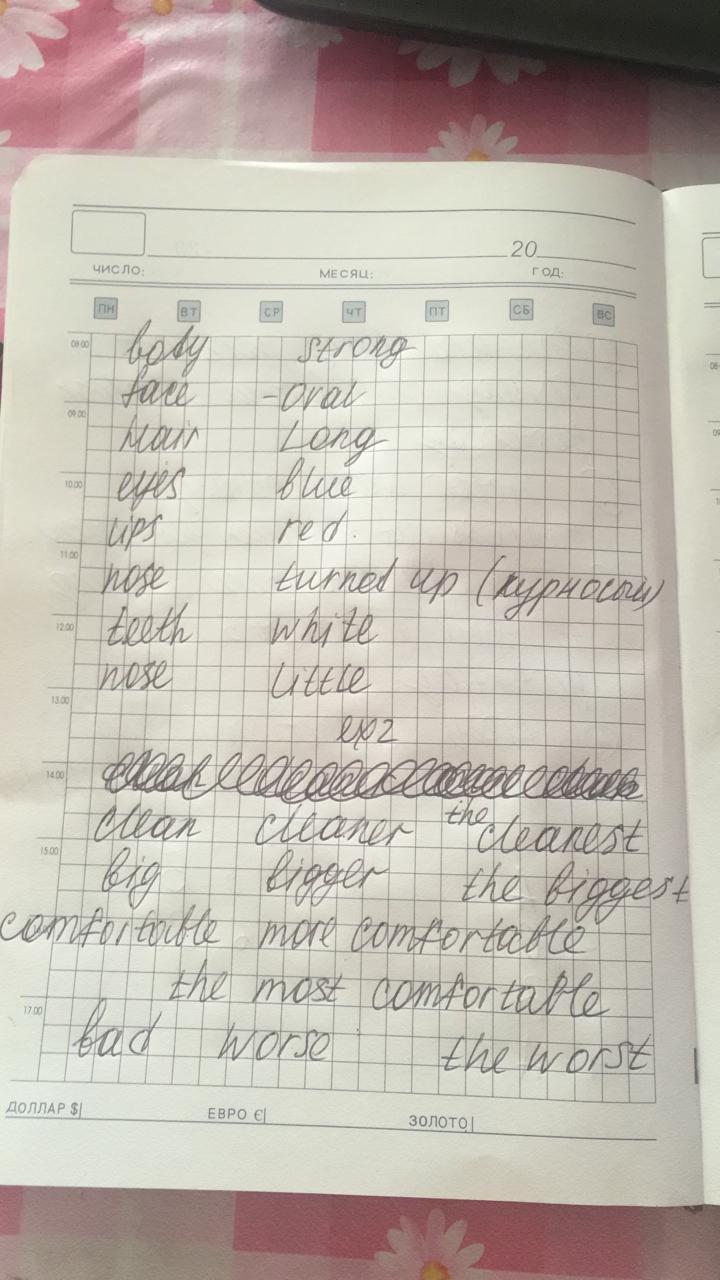 20
ЧИСЛО: МЕСЯЦ: ГОД:
ПН ВТ СР ЧТ ПТ СБ ВС
08:00 body strong
face - oval
09.00
hair Long
10.00 eyes blue
lips red.
11.00
nose turned up (курносый)
12.00 teeth white
nose little
13.00
ex 2
14.00
clean cleaner the cleanest
15.00
big bigger the biggest
comfortable more comfortable
the most comfortable
17.00
bad worse the worst
ДОЛЛАР $| ЕВРО €| ЗОЛОТО|